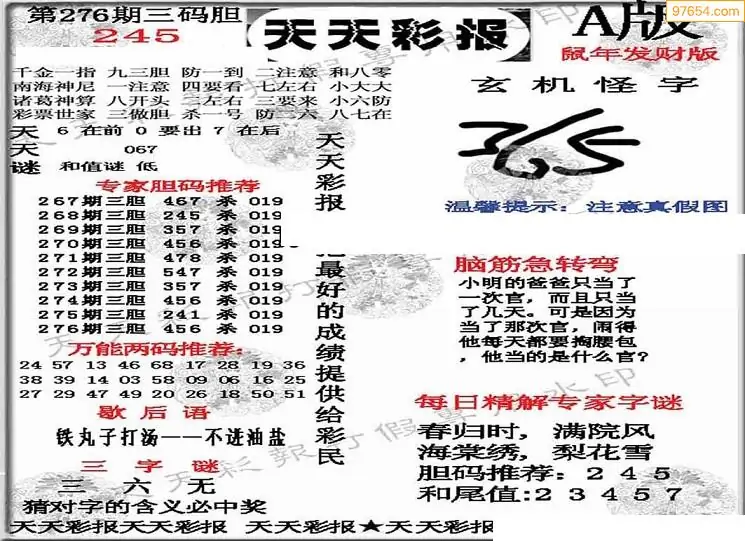 第276期三码胆
245
天天彩报
A版
97654.com
鼠年发财版
千金一指 九三胆 防一到 二注意 和八零
南海神尼 一注意 四要看 七左右 小大大
诸葛神算 八开头 二左右 三要来 小六防
彩票世家 三做胆 杀一号 防二六 八七在
天 6 在前 0 要出 7 在后
天 067
谜 和值谜 低
专家胆码推荐
267期三胆 467 杀 019
268期三胆 245 杀 019
269期三胆 357 杀 019
270期三胆 456 杀 019
271期三胆 478 杀 019
272期三胆 547 杀 019
273期三胆 357 杀 019
274期三胆 456 杀 019
275期三胆 241 杀 019
276期三胆 456 杀 019
万能两码推荐:
24 57 13 46 68 17 28 19 36
38 39 14 03 58 09 06 16 25
27 29 47 49 20 26 18 50 51
歇后语
铁丸子打汤——不进油盐
三字谜
三 六 无
猜对字的含义必中奖
天天彩报
最好的成绩提供给彩民
玄机怪字
365
温馨提示: 注意真假图
脑筋急转弯
小明的爸爸只当了
一次官,而且只当
了几天。可是因为
当了那次官,闹得
他每天都要掏腰包
,他当的是什么官?
每日精解专家字谜
春归时,满院风
海棠绣,梨花雪
胆码推荐:245
和尾值:23457
天天彩报天天彩报 天天彩报★天天彩报